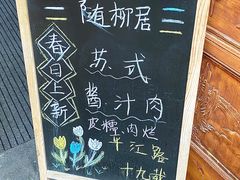 随柳居
春日上新
苏式
酱汁肉
皮糯肉烂
平江路
十九载